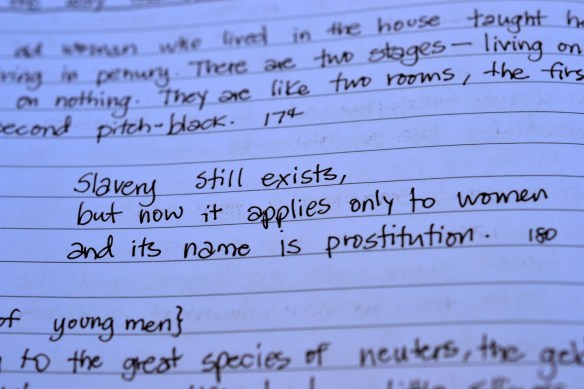 old woman who lived in the house taught h
ring in penury. There are two stages – living on
on nothing. They are like two rooms, the firs
econd pitch-black. 174
Slavery still exists,
but now it applies only to women
and its name is prostitution. 180
of young men}
to the great species of neuters, the geld